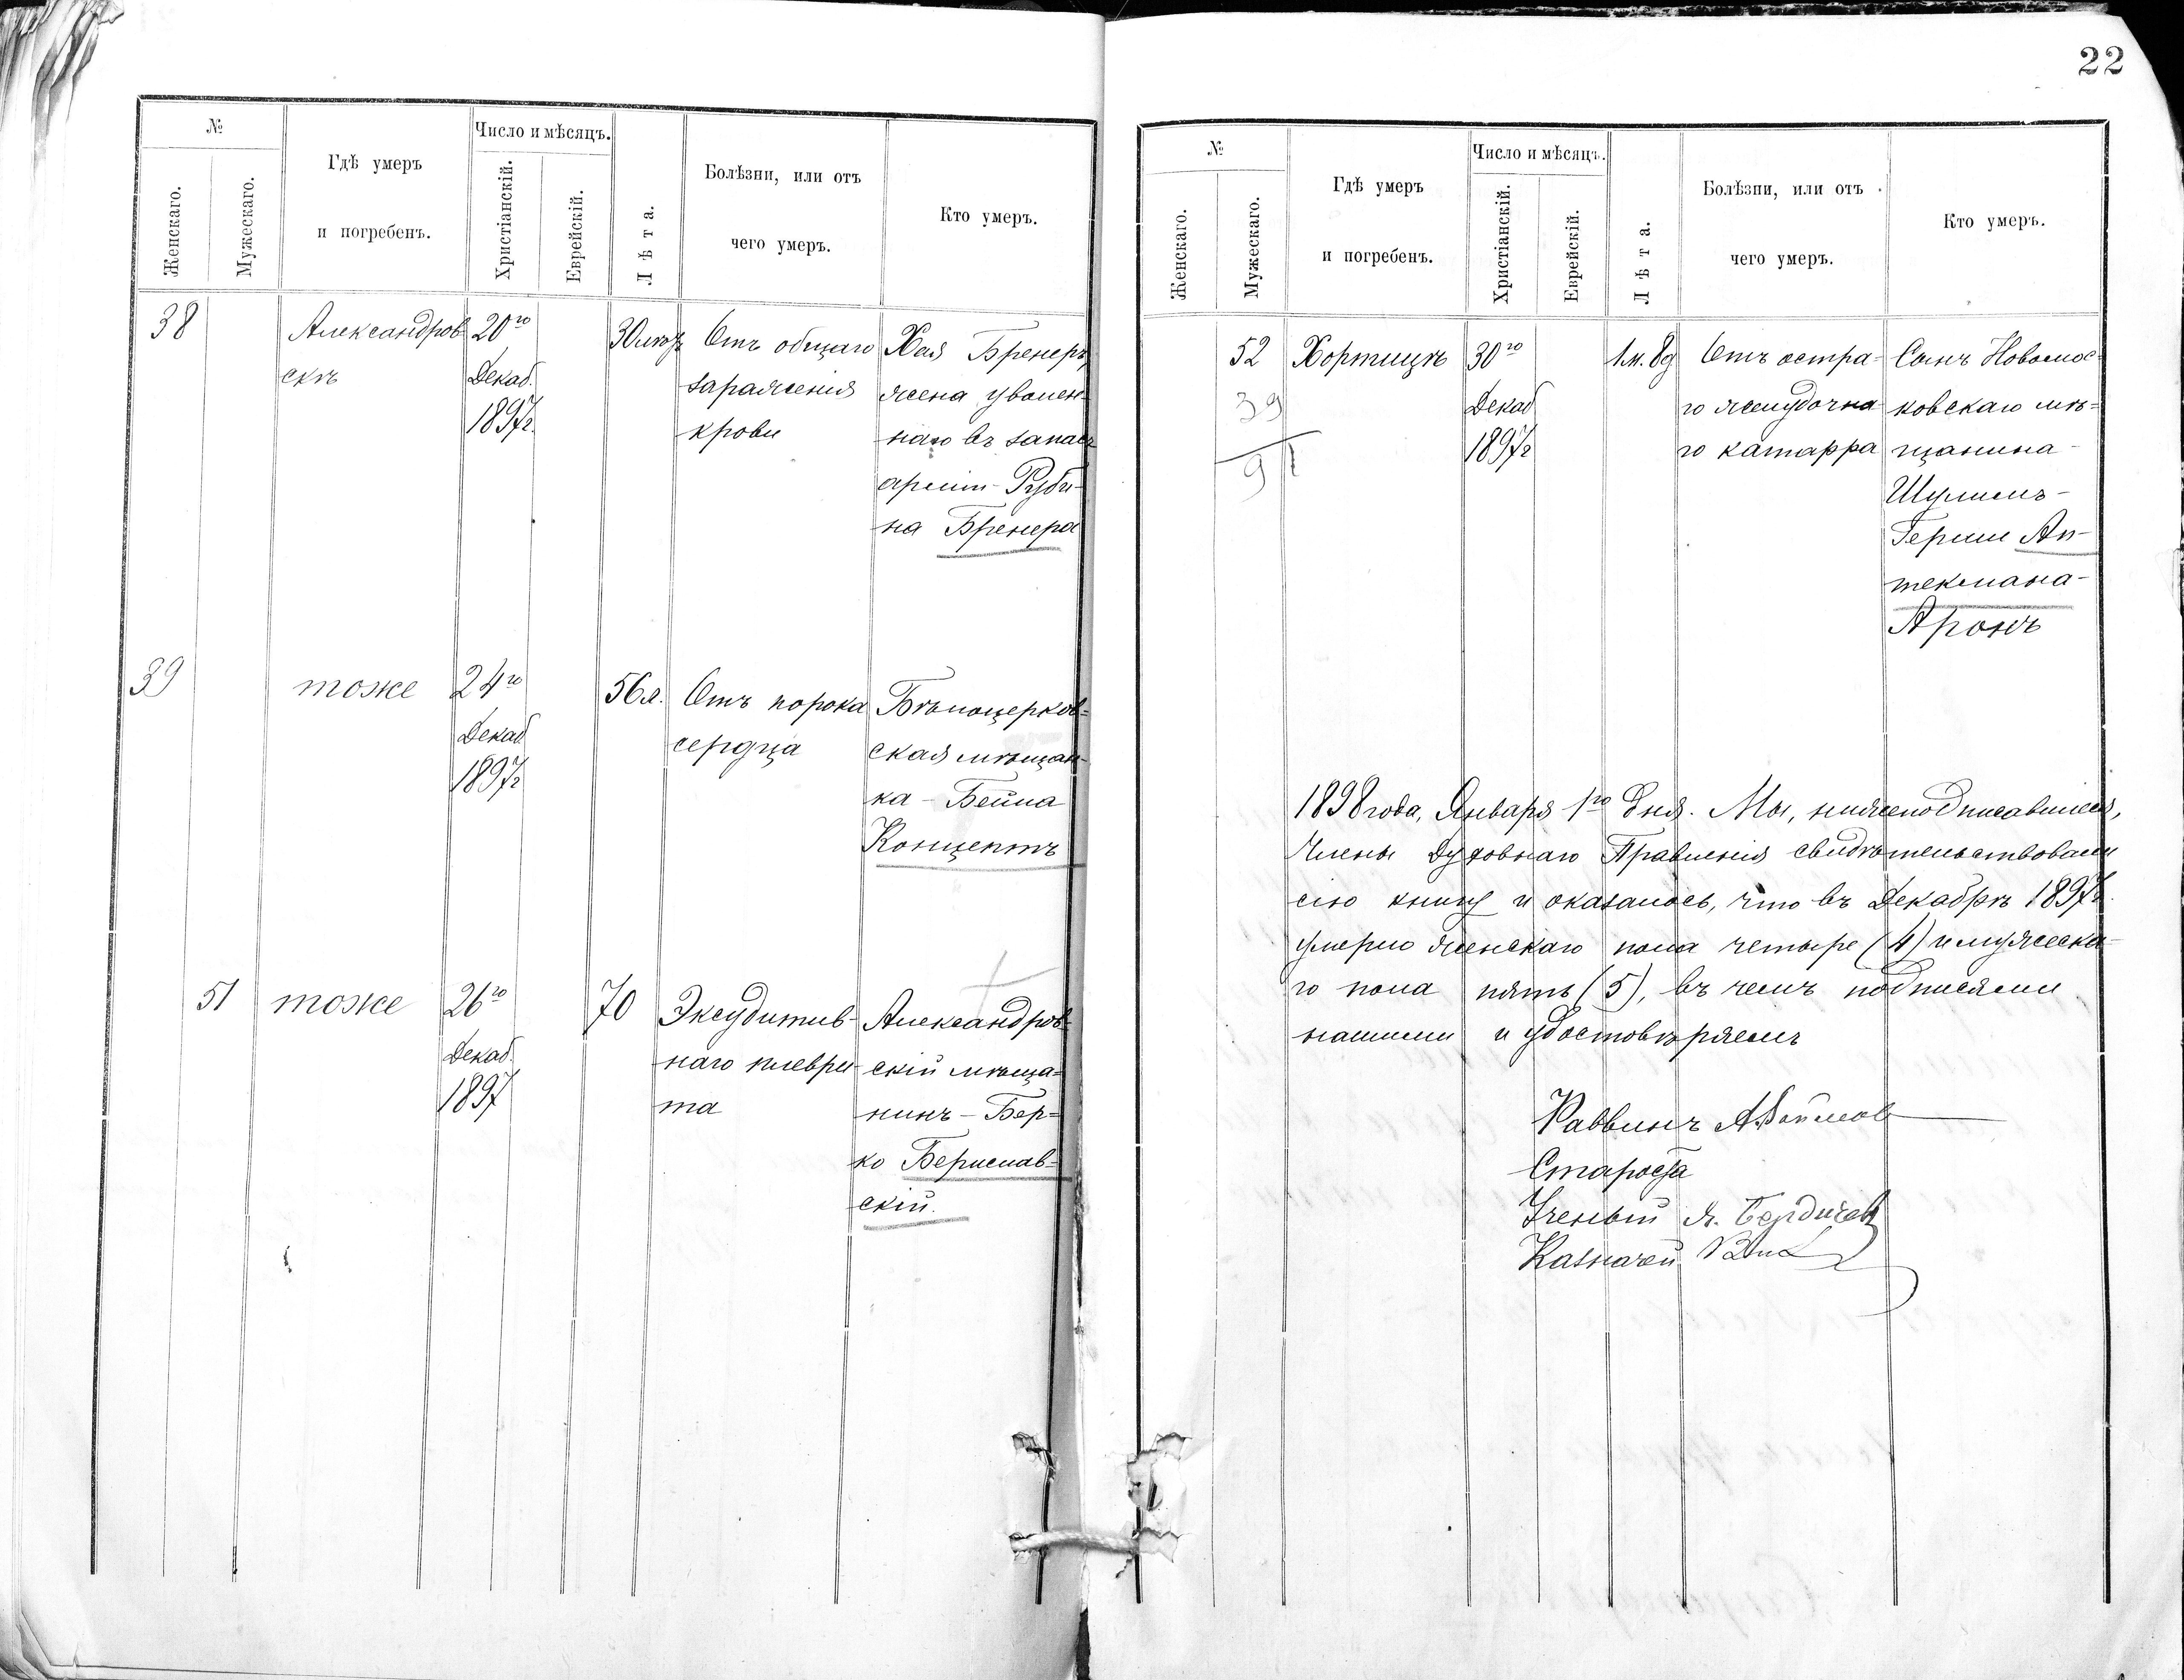 22
№
Женскаго.
Мужескаго.
Гдѣ умеръ
и погребенъ.
Число и мѣсяцъ.
Христіанскій.
Еврейскій.
Лѣта.
Болѣзни, или отъ
чего умеръ.
Кто умеръ.
38
Александров-
скъ
20го
Декаб.
1897г.
30
Отъ общаго
зараженія
крови
Хая Бренеръ,
жена уволен-
наго въ запасъ
арміи - Руби-
на Бренера
39
тоже
24го
Декаб
1897г
56 л.
Отъ порока
сердца
Бѣлоцерков=
ская мѣщан-
ка - Бейла
Концентъ
51
тоже
26го
Декаб.
1897
70
Эксудатив-
наго плеври-
та
Александров-
скій мѣща=
нинъ - Бер=
ко Бериславъ=
скій.
№
Женскаго.
Мужескаго.
Гдѣ умеръ
и погребенъ.
Число и мѣсяцъ.
Христіанскій.
Еврейскій.
Лѣта.
Болѣзни, или отъ
чего умеръ.
Кто умеръ.
52
39
91
Хортицѣ
30го
Декаб
1897г
1м. 8д
Отъ остра-
го желудочна-
го катарра
Сынъ Новомос=
ковскаго мѣ=
щанина -
Шулимъ -
Герши Ап-
текмана -
Аронъ
1898 года, Января 1го дня. Мы, нижеподписавшіеся,
Члены Духовнаго Правленія свидѣтельствовали
сію книгу и оказалось, что въ Декабрѣ 1897г.
умерло женскаго пола четыре (4) и мужеска-
го пола пять (5), въ чемъ подписями
нашими и удостовѣряемъ
Раввинъ
Староста
Ученый Я. Бердичев
Казначей